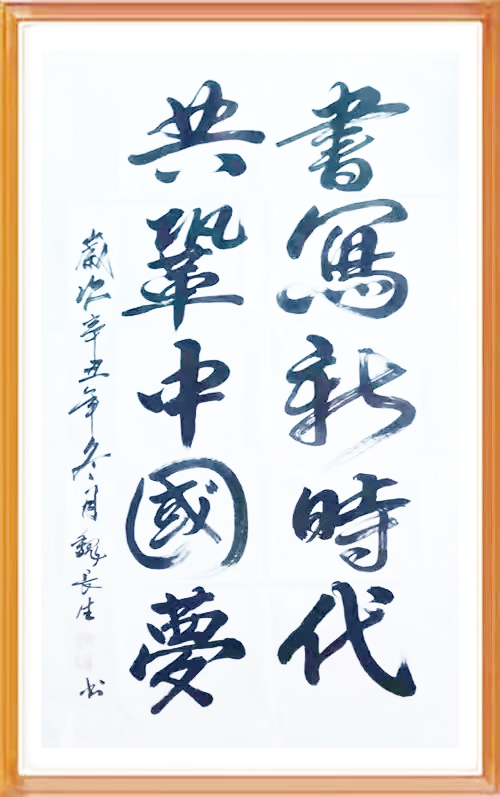 書寫新時代
共鞏中國夢
歲次辛丑年冬月魏長生书